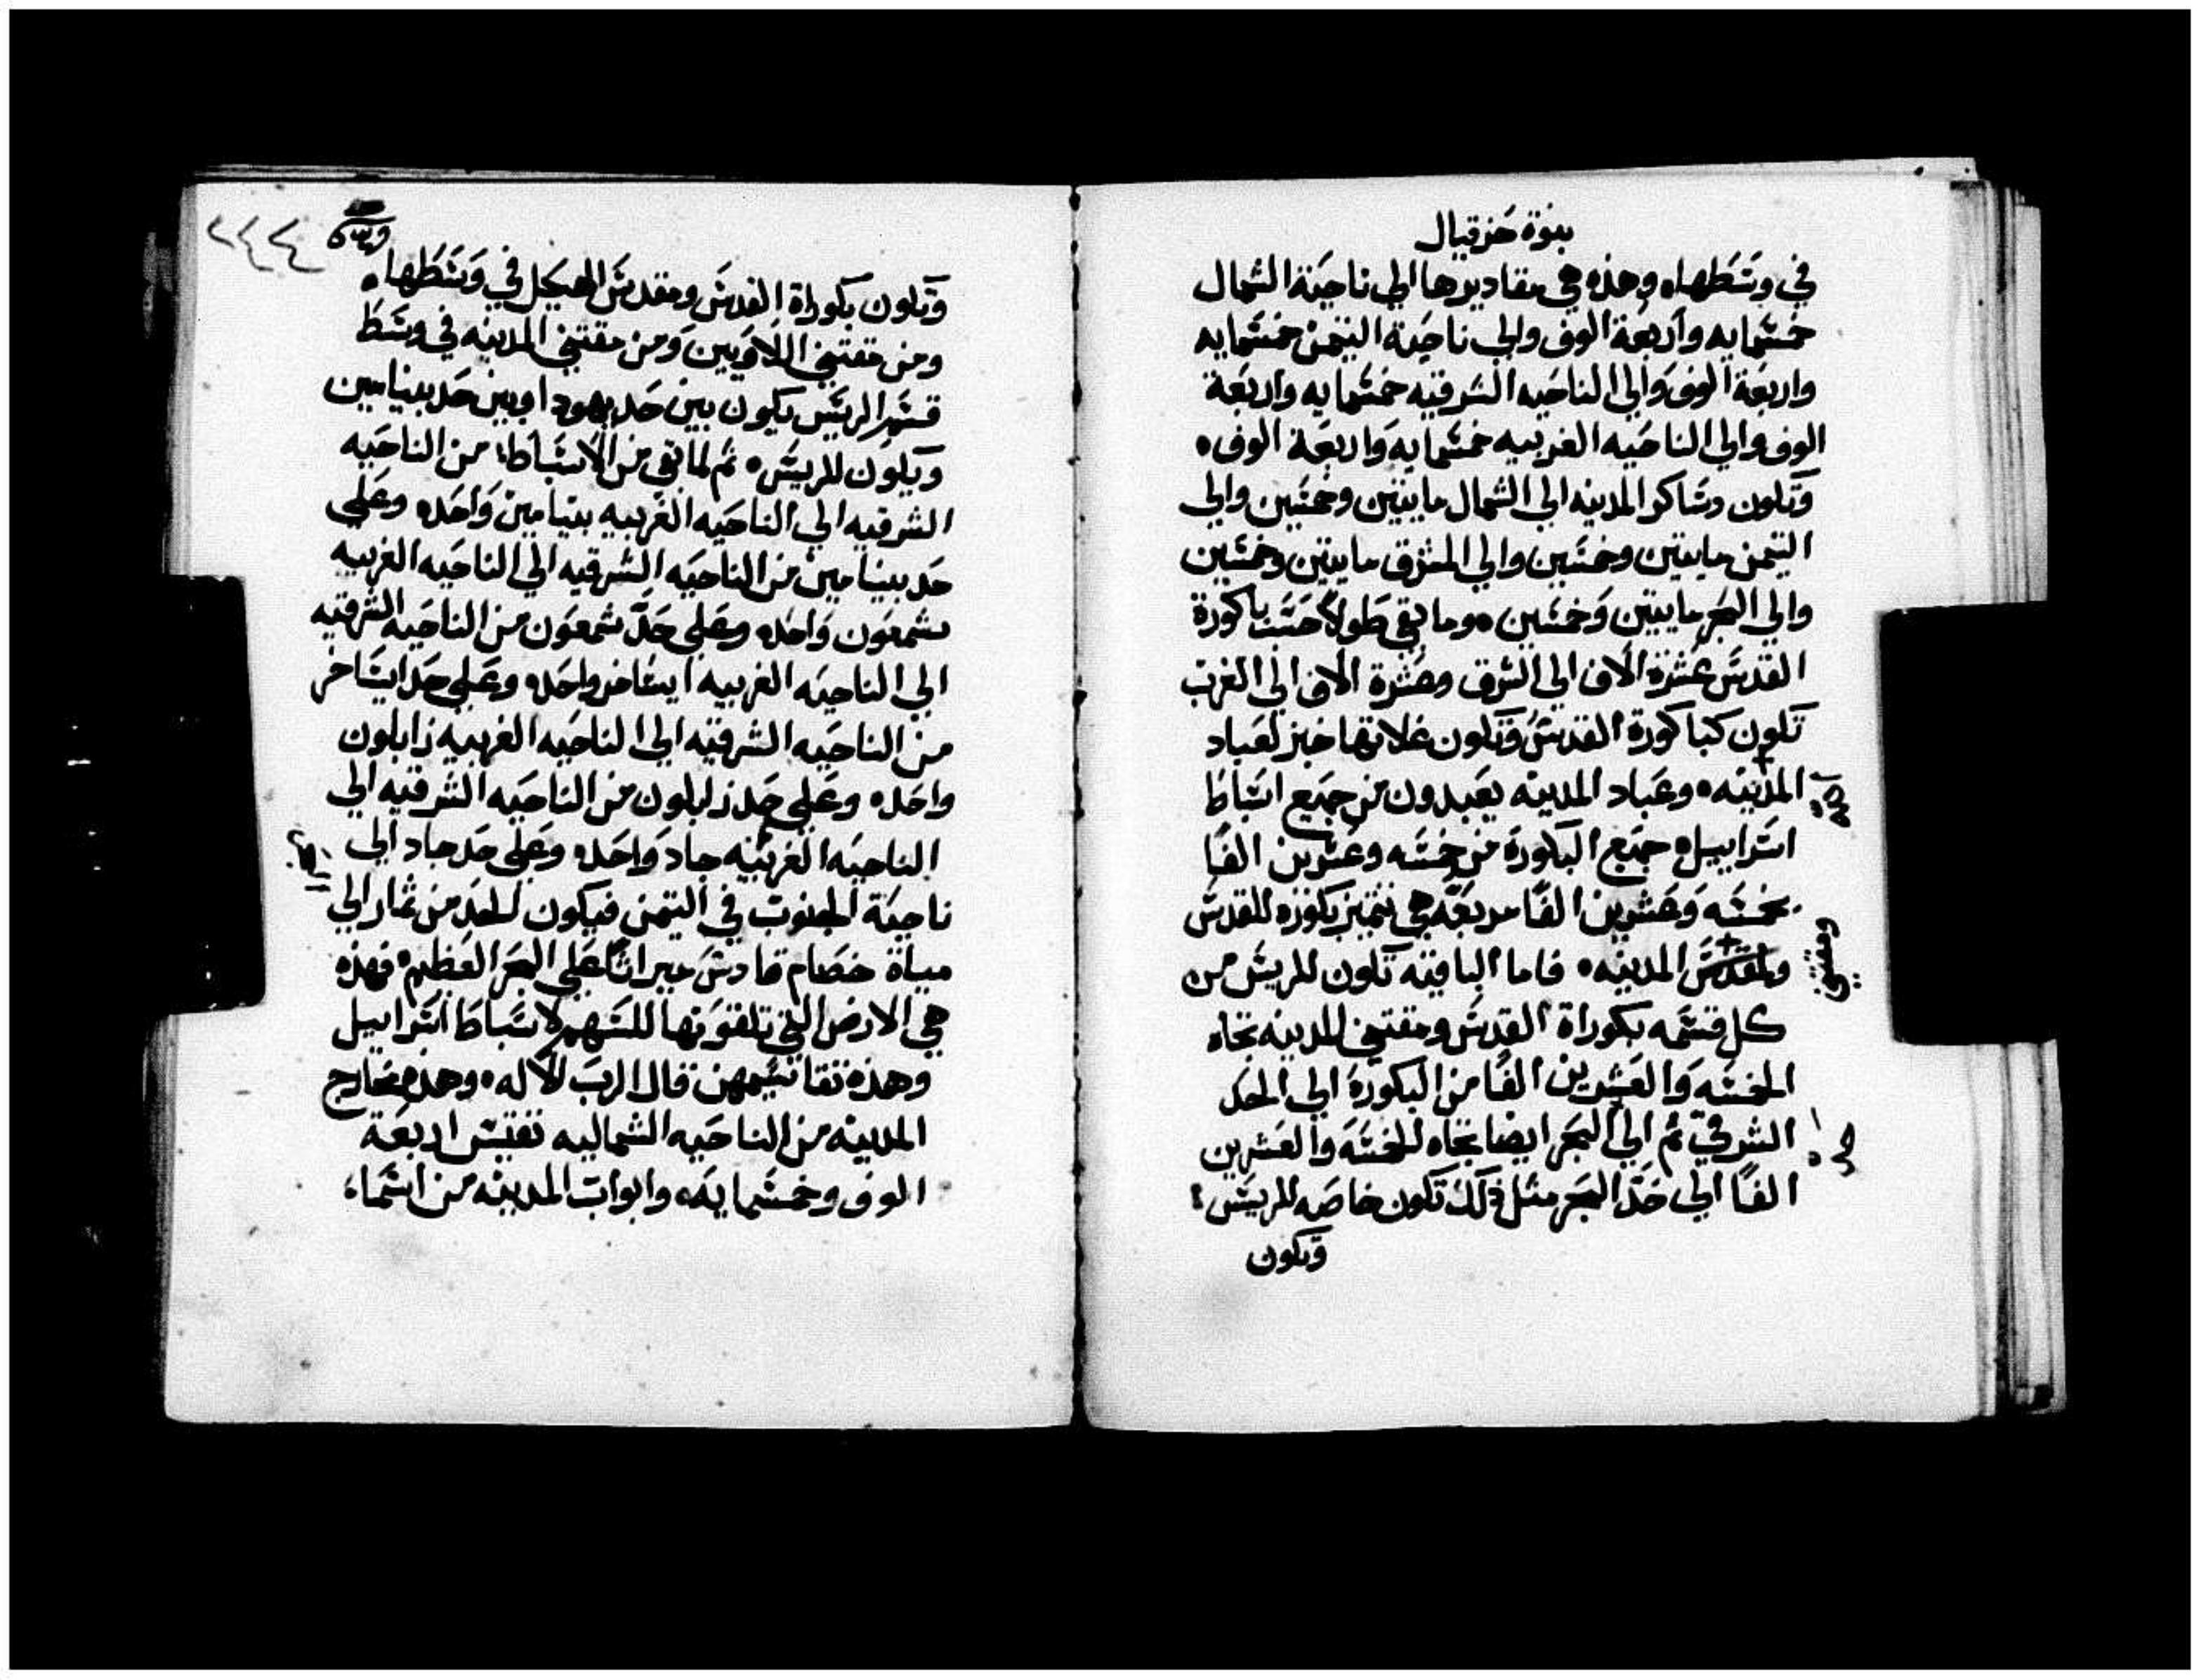 نبوة حزقيال
في وسَطها، وهذه هي مقاديرها الي ناحية الشمال
خمسَمايه واربعة الوف والي ناحية التيمن خمسَمايه
واربعَة الوف وَالي الناحيه الشرقيه خمسَمايه واربَعة
الوف والي الناحَيه الغربيه خمسَمايه وَاربعَة الوف ه
وتكون دسَاكر المدينه الي الشمال مايتين وخمسَين والي
التيمن مايتين وخمسَين والي المشرق مايتين وخمسَين
والي البحر مايتين وَخمسَين ه وما بقي طولاً حسَب باكورة
القدسَ عشرة الاف الي الشرق وعشرة الاف الي الغرب
تكون كباكورة القدسَ وتكون غلاتها خبز لعباد
المدينه ه وعَباد المدينه يعَبدون من جميع اسَباط
اسَراييل ه جميع الباكورة من خمسَه وعشرين الفًا
بخمسَه وَعَشرين الفًا مربعَه هي تتميز بكوره للقدسَ
ولمقدسَ المدينه ه فاما الباقيه تكون للريسَ من
ومقتني
كل قسَمه بكوراة القدسَ ومقتني المدينه تجاه
الخمسَه وَالعَشرين الفًا من البكورة الي الحد
الشرقي ثم الي البحر ايضا تجاه للخمسَه والعَشرين
الفًا الي حَد البحر مثل ذلك تكون خاصَه للريسَ
وتكون
٢٤٤
وتكون بكوراة القدسَ ومقدسَ الهيكل في وَسَطها ه
ومن مقتني اللاويين وَمن مقتني المدينه في وسَط
قسَم الريسَ يكون بين حَد يهودا وبين حَد بنيامين
ويكون للريسَ ه ثم لما بقي من الاسَباط من الناحَيه
الشرقيه الي الناحَيه الغربيه بنيامين وَاحَده وعَلي
حَد بنيامين من الناحيَه الشرقيه الي الناحَيه الغربيه
شمعَون وَاحَده وعَلي حَد شمعَون من الناحَيه الشرقيه
الي الناحيه الغربيه ايسَاخر واحَده وعَلي حَد ايسَاخر
من الناحَيه الشرقيه الي الناحَيه الغربيه زابلون
واحَده وعَلي حَد زابلون من الناحَيه الشرقيه الي
الناحيَه الغربيه جاد وَاحَده وعَلي حَد جاد الي
ناحيَة الجنوب في التيمن فيكون الحَد من ثمار الي
مياة خصَام قادسَ ميراثًا عَلي البحر العَظيم ه فهذه
هي الارض التي تلقوَنها للسَهم لاسَباط اسَراييل
وهذه تقاسَيمهن قال الرب الاله ه وهذه مخارج
المدينه من الناحَيه الشماليه تفتيش اربعَة
الوف وخمسَمايَه، وابواب المدينه من اسَما